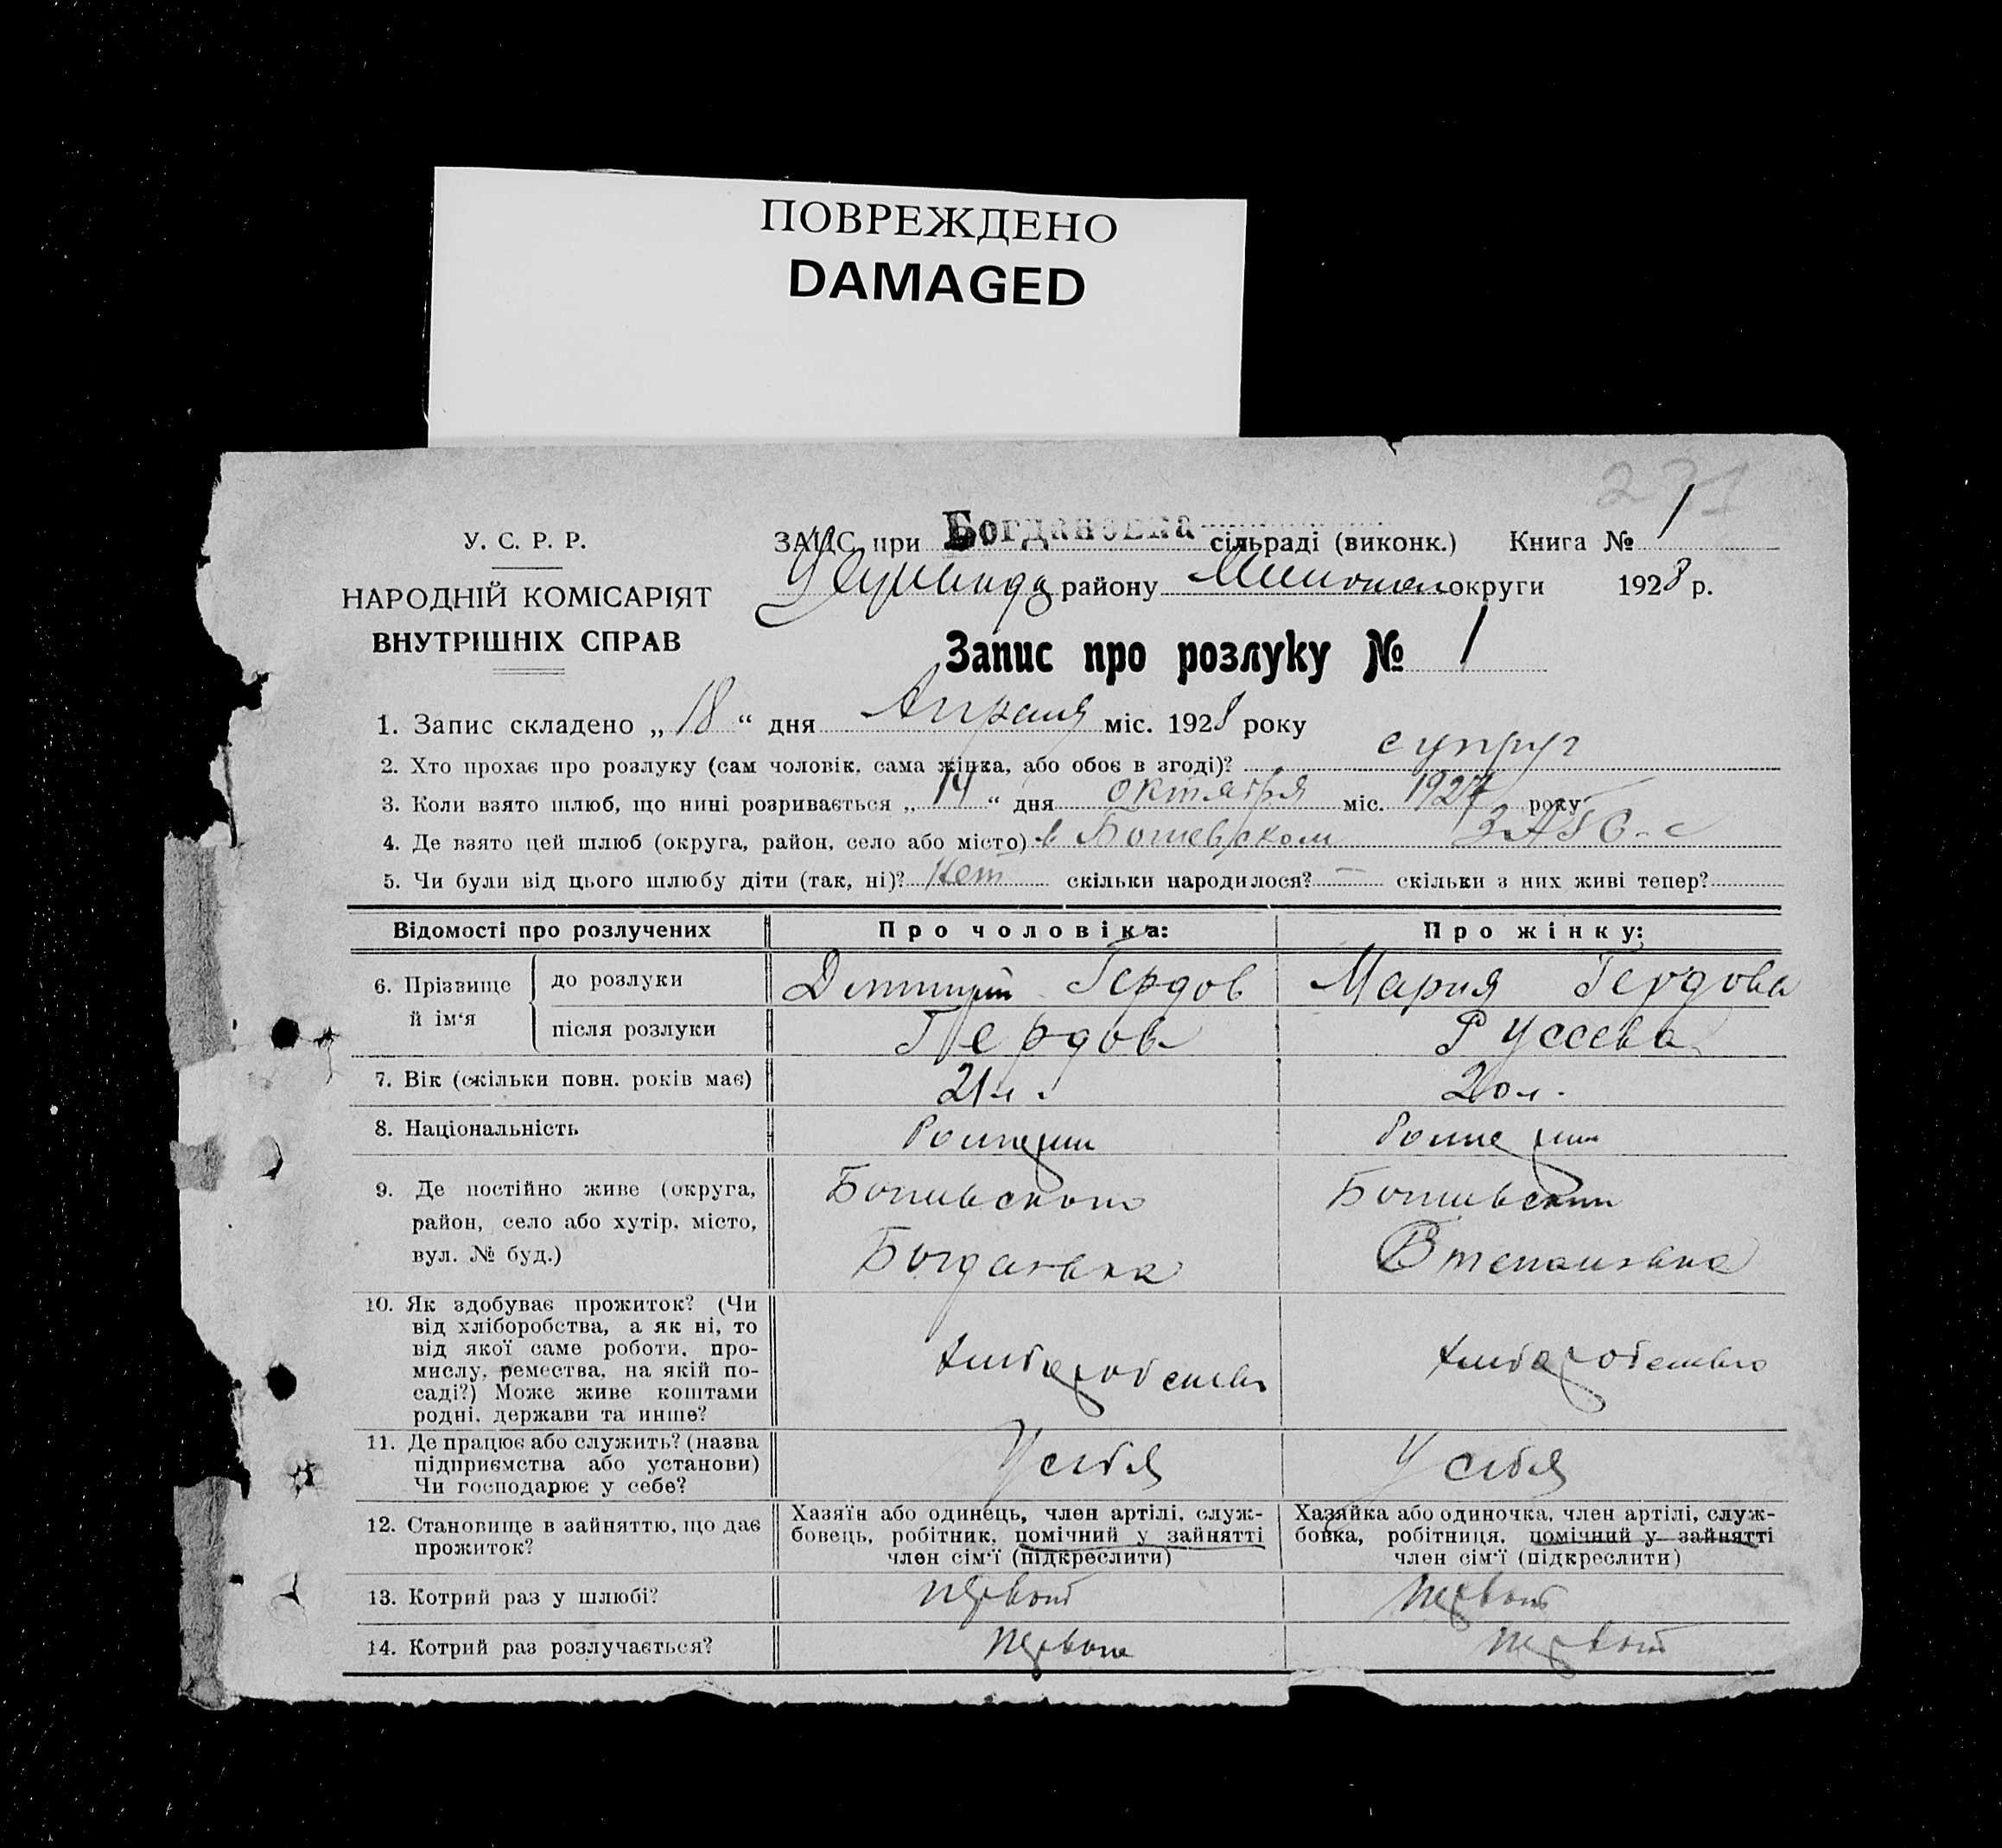 ПОВРЕЖДЕНО
DAMAGED
271
У. С. Р. Р.
НАРОДНІЙ КОМІСАРІЯТ
ВНУТРІШНІХ СПРАВ
ЗАЦС при Богдановка сільраді (виконк.) Книга № 1
району округи 1928 р.
Запис про розлуку № 1
1. Запис складено „ 18 “ дня Апреля міс. 1928 року
2. Хто прохає про розлуку (сам чоловік, сама жінка, або обоє в згоді)? супруг
3. Коли взято шлюб, що нині розривається „ 14 “ дня октября міс. 1927 року
4. Де взято цей шлюб (округа, район, село або місто) в
5. Чи були від цього шлюбу діти (так, ні)? Нет скільки народилося? — скільки з них живі тепер?
Відомості про розлучених Про чоловіка: Про жінку:
6. Прізвище й ім‘я до розлуки Дмитрий Гердов Мария Гердова
після розлуки Гердов Руссева
7. Вік (скільки повн. років має) 21 л. 20 л.
8. Національність
9. Де постійно живе (округа,
район, село або хутір, місто,
вул. № буд.)
Богдановка
10. Як здобуває прожиток? (Чи
від хліборобства, а як ні, то
від якої саме роботи, про-
мислу, ремества, на якій по-
саді?) Може живе коштами
родні, держави та инше?
11. Де працює або служить? (назва
підприємства або установи)
Чи господарює у себе?
У себя У себя
12. Становище в зайняттю, що дає
прожиток?
Хазяїн або одинець, член артілі, служ-
бовець, робітник, помічний у зайнятті
член сім‘ї (підкреслити)
Хазяйка або одиночка, член артілі, служ-
бовка, робітниця, помічний у зайнятті
член сім‘ї (підкреслити)
13. Котрий раз у шлюбі? первой первой
14. Котрий раз розлучається? первой первой